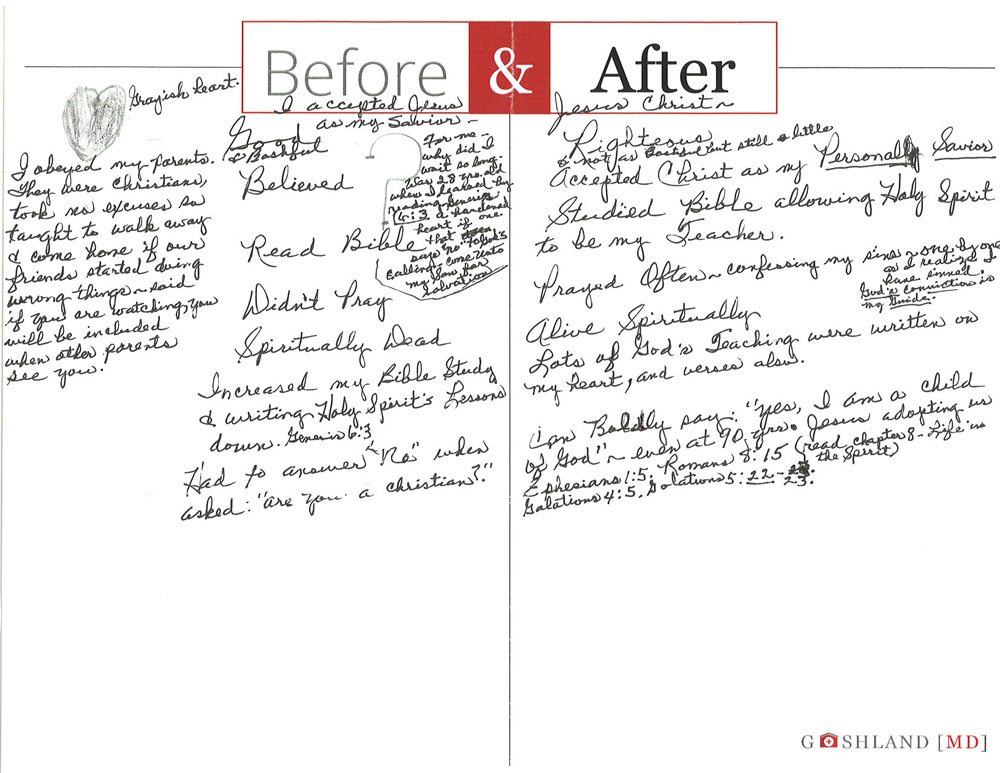 Before & After
Grayish heart.
I obeyed my parents.
They were Christians,
took no excuses so
taught to walk away
& come home if our
friends started doing
wrong things ~ said
if you are watching, you
will be included
when other parents
see you.
I accepted Jesus
as my Savior -
Good
& Bashful
Believed
Read Bible
Didn't Pray
Spiritually Dead
Increased my Bible Study
& writing Holy Spirit's Lessons
down. Genesis 6:3
Had to answer "No" when
asked: "are you a christian?"
For me -
why did I
wait so long.
Was 28 yrs. old
when I learned by
reading Genesis
6:3 a hardened
heart if one
that
says "no" to God's
calling - come unto
my Son for
salvation
Jesus Christ ~
Righteous
& not as Bashful but still a little
Accepted Christ as my Personal Savior
Studied Bible allowing Holy Spirit
to be my Teacher.
Prayed Often ~ confessing my sins ~ one by one
as I realize I
have sinned.
God's conviction is
my Guide.
Alive Spiritually
Lots of God's Teaching were written on
my heart, and verses also.
I can Boldly say: "Yes, I am a child
of God" ~ even at 90 yrs. Jesus adopting us
Ephesians 1:5. Romans 8:15 (read chapter 8 - Life in
the Spirit)
Galations 4:5. Galations 5:22-23.
GOSHLAND [MD]